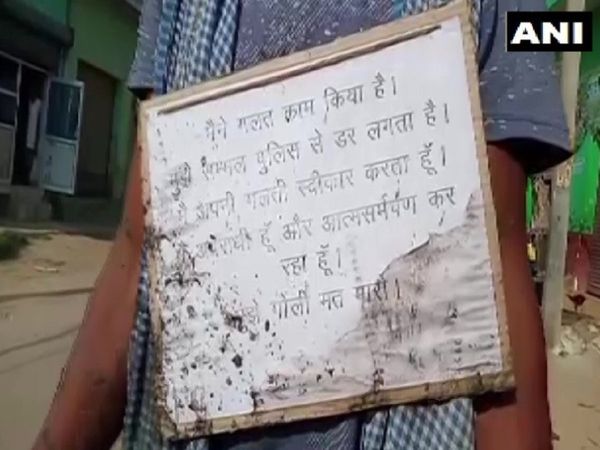 ANI
मैने गलत काम किया है।
मुझे सम्भल पुलिस से डर लगता है।
मै अपनी गलती स्वीकार करता हूँ।
अपराधी हूँ और आत्मसर्मपण कर
रहा हूँ।
गोली मत मारो।